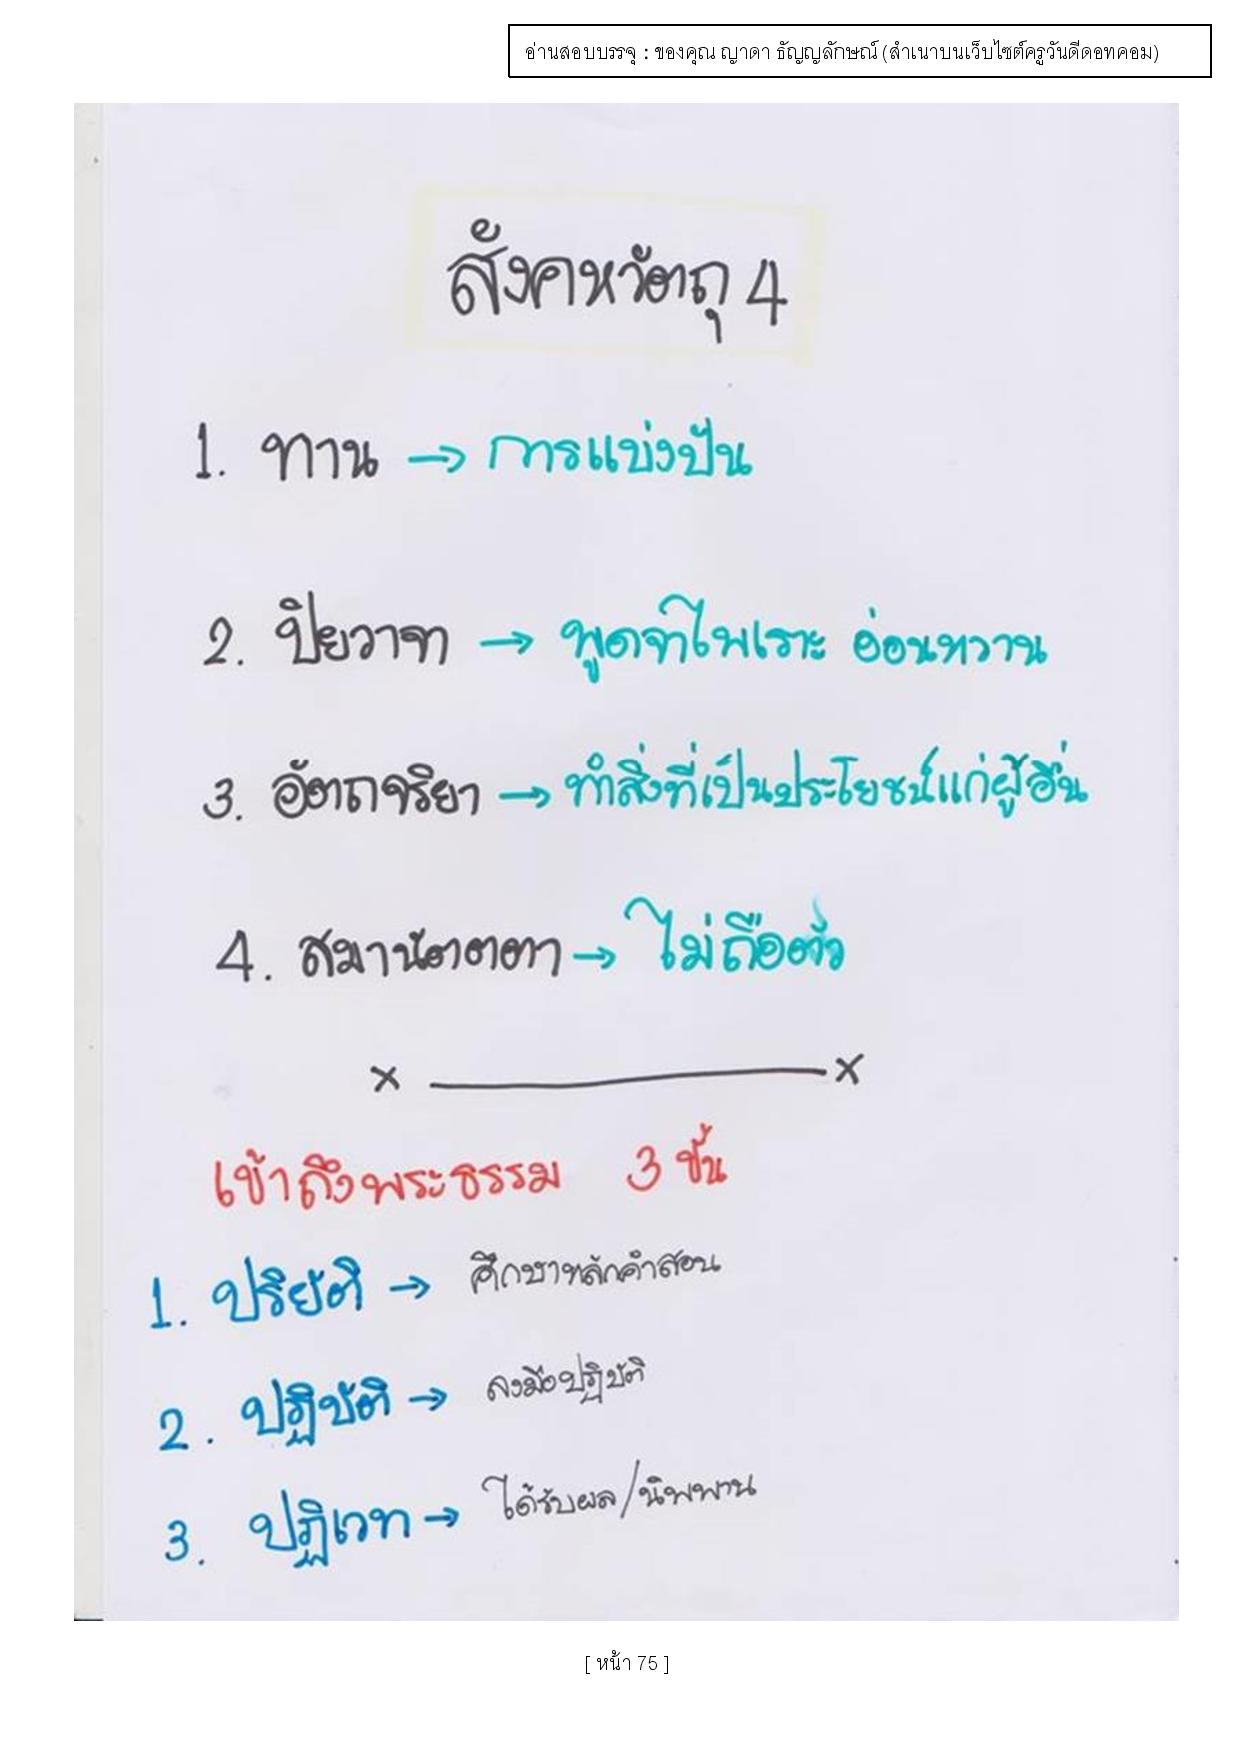 อ่านสอบบรรจุ : ของคุณ ญาดา ธัญญลักษณ์ (สำเนาบนเว็บไซต์ครูวันดีดอทคอม)
สังคหวัตถุ 4
1. ทาน → การแบ่งปัน
2. ปิยวาจา → พูดจาไพเราะ อ่อนหวาน
3. อัตถจริยา → ทำสิ่งที่เป็นประโยชน์แก่ผู้อื่น
4. สมานัตตตา → ไม่ถือตัว
x ——— x
เข้าถึงพระธรรม 3 ขั้น
1. ปริยัติ → ศึกษาหลักคำสอน
2. ปฏิบัติ → ลงมือปฏิบัติ
3. ปฏิเวท → ได้รับผล/นิพพาน
[ หน้า 75 ]